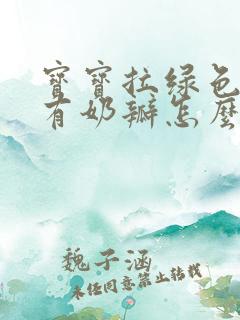 寳寳拉绿色
有奶瓣怎麽
魏子涵
未经同意禁止转载